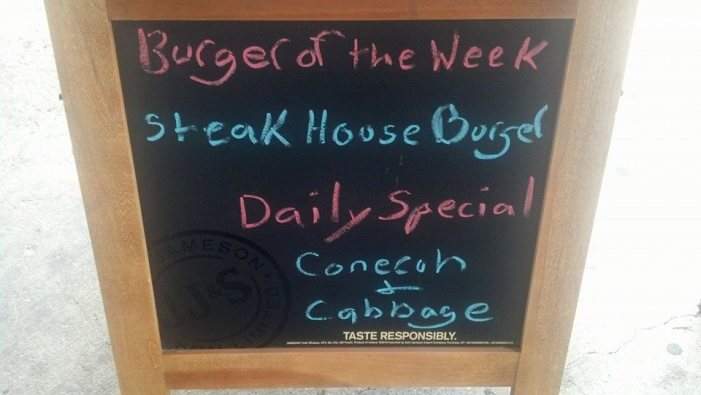 Burger of the Week
Steak House Burger
Daily Special
Conecuh
+
Cabbage
JAMESON
J&S
TASTE RESPONSIBLY.